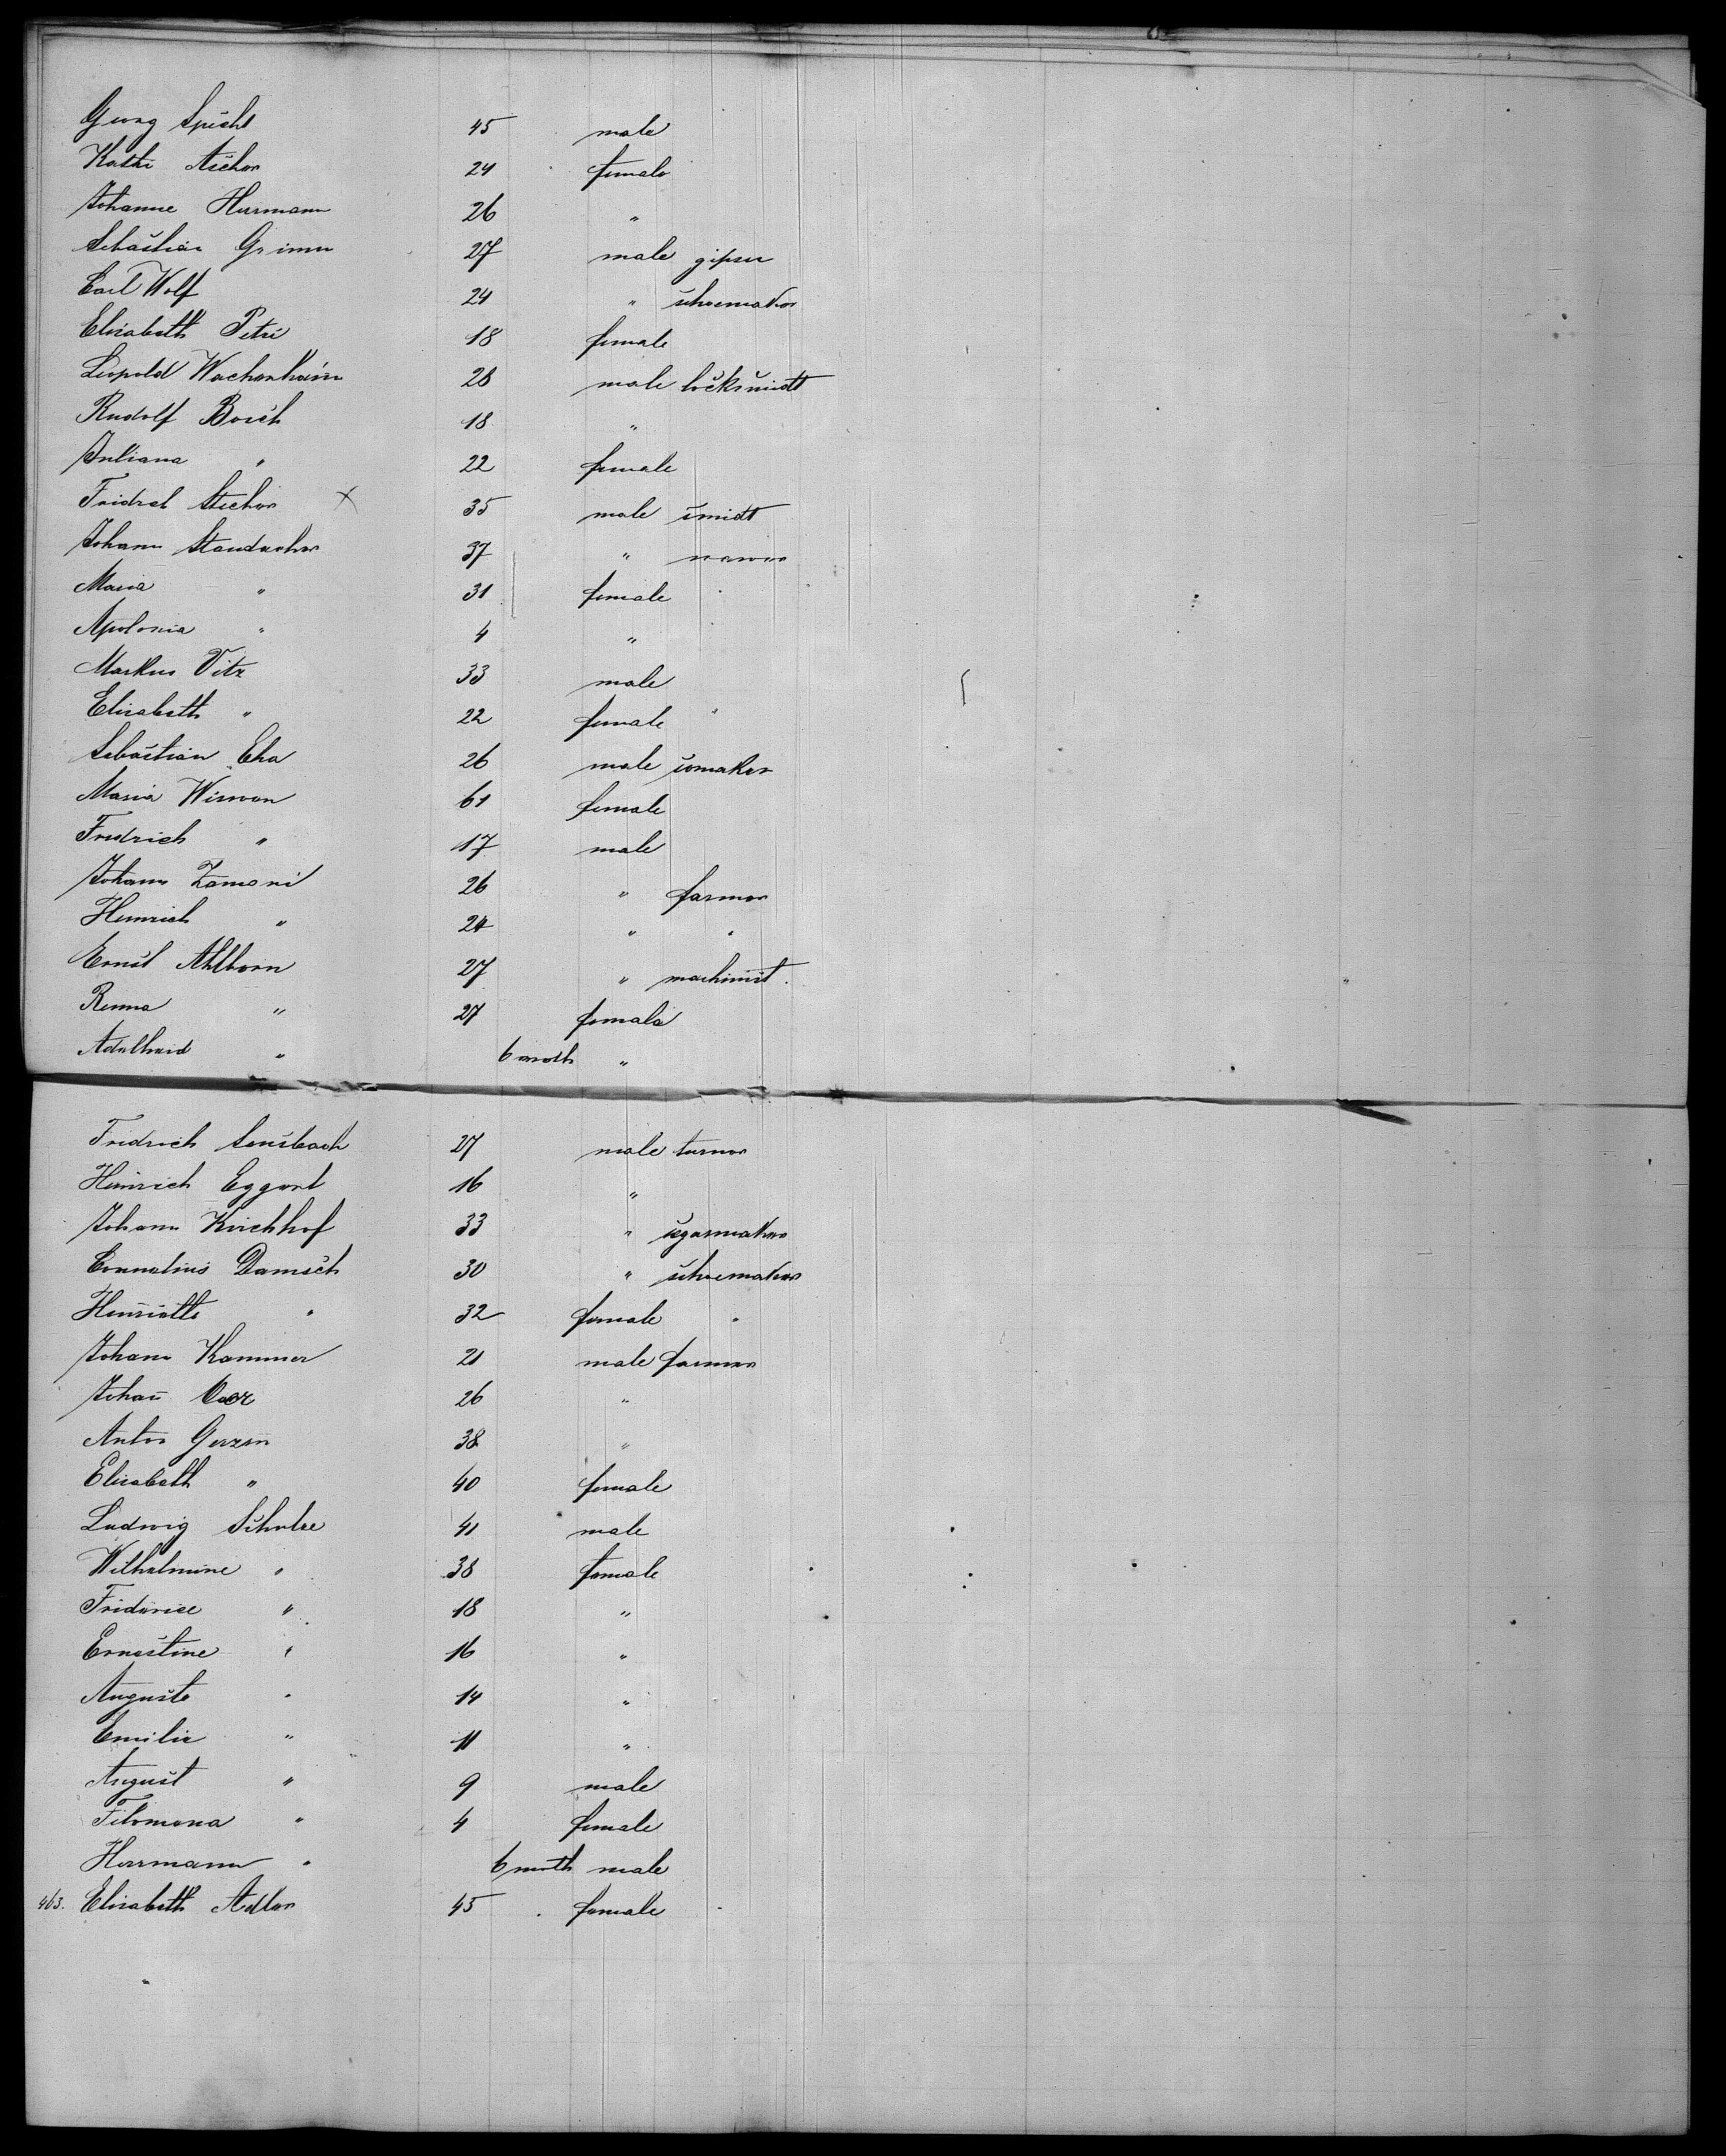 Georg Specht 45 male
Kathi Aicher 24 female
Johanne Herrmann 26 "
Sebastian Grimm 27 male gipser
Carl Wolf 24 " schoemaker
Elisabeth Petri 18 female
Leopold Wachenheim 28 male locksmidt
Rudolf Bosch 18 "
Juliana " 22 female
Fridrch Stecher x 35 male smidt
Johann Staudacher 37 "
Maria " 31 female
Apolonia " 4 "
Markus Vitz 33 male
Elisabeth " 22 female
Sebastian Eha 26 male somaker
Maria 61 female
Fredrich " 17 male
Johann Zamoni 26 " farmer
Heinrich " 24 " "
Ernst Ahlborn 27 " machinist.
Renna " 27 female
Adelheid " 6 month "
Fridrich Sensbach 27 male turner
Heinrich Eggert 16 "
Johann Kirchhof 33 " segarmaker
Cornelius Damsch 30 " schoemaker
Henriette " 32 female "
Johann Kammer 21 male farmer
Johan 26 "
Anton Gerzen 38 "
Elisabeth " 40 female
Ludwig Schulze 41 male
Wilhelmine " 38 female
Friderice " 18 "
Ernestine " 16 "
Auguste " 14 "
Emilie " 11 "
August " 9 male
Filomena " 4 female
Herrmann " 6 month male
463. Elisabeth Adler 45 female